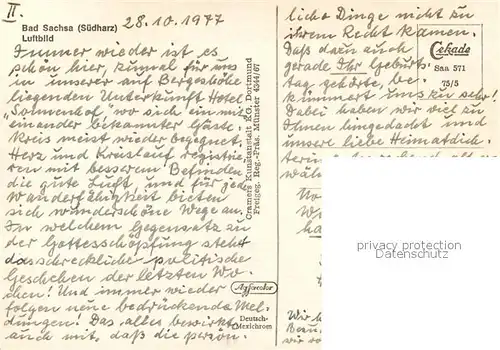 II.
Bad Sachsa (Südharz)
Luftbild
28.10.1977
Immer wieder ist es
schön hier, zumal für uns
in unserer auf Bergeshöhe
liegenden Unterkunft Hotel
"Sonnenhof", wo sich ein mit
einander bekannter Gäste-
kreis meist wieder begegnet.
Herz und Kreislauf registrie-
ren mit besserem Befinden
die gute Luft, und für jede
Wanderfähigkeit bieten
sich wunderschöne Wege an.
In welchem Gegensatz zu
der Gottesschöpfung steht
das schreckliche politische
Geschehen der letzten Wo-
chen! Und immer wieder
folgen neue bedrückende Mel-
dungen! Das alles bewirkte
auch mit, daß die persön-
Cramers Kunstanstalt KG, Dortmund
Freigeg. Reg.-Präs. Münster 4344/67
Agfacolor
Deutsch-
Mexichrom
lichen Dinge nicht zu
ihrem Recht kamen.
Daß dazu auch
gerade Ihr Geburts-
tag gehörte, be-
kümmert uns sehr!
Dabei haben wir viel an
Ihnen hingedacht und
unsere liebe Heimatdich-
terin
Cekade
Saa 571
75/5
privacy protection
AnsichtskartenVersand.com
Wir
wir